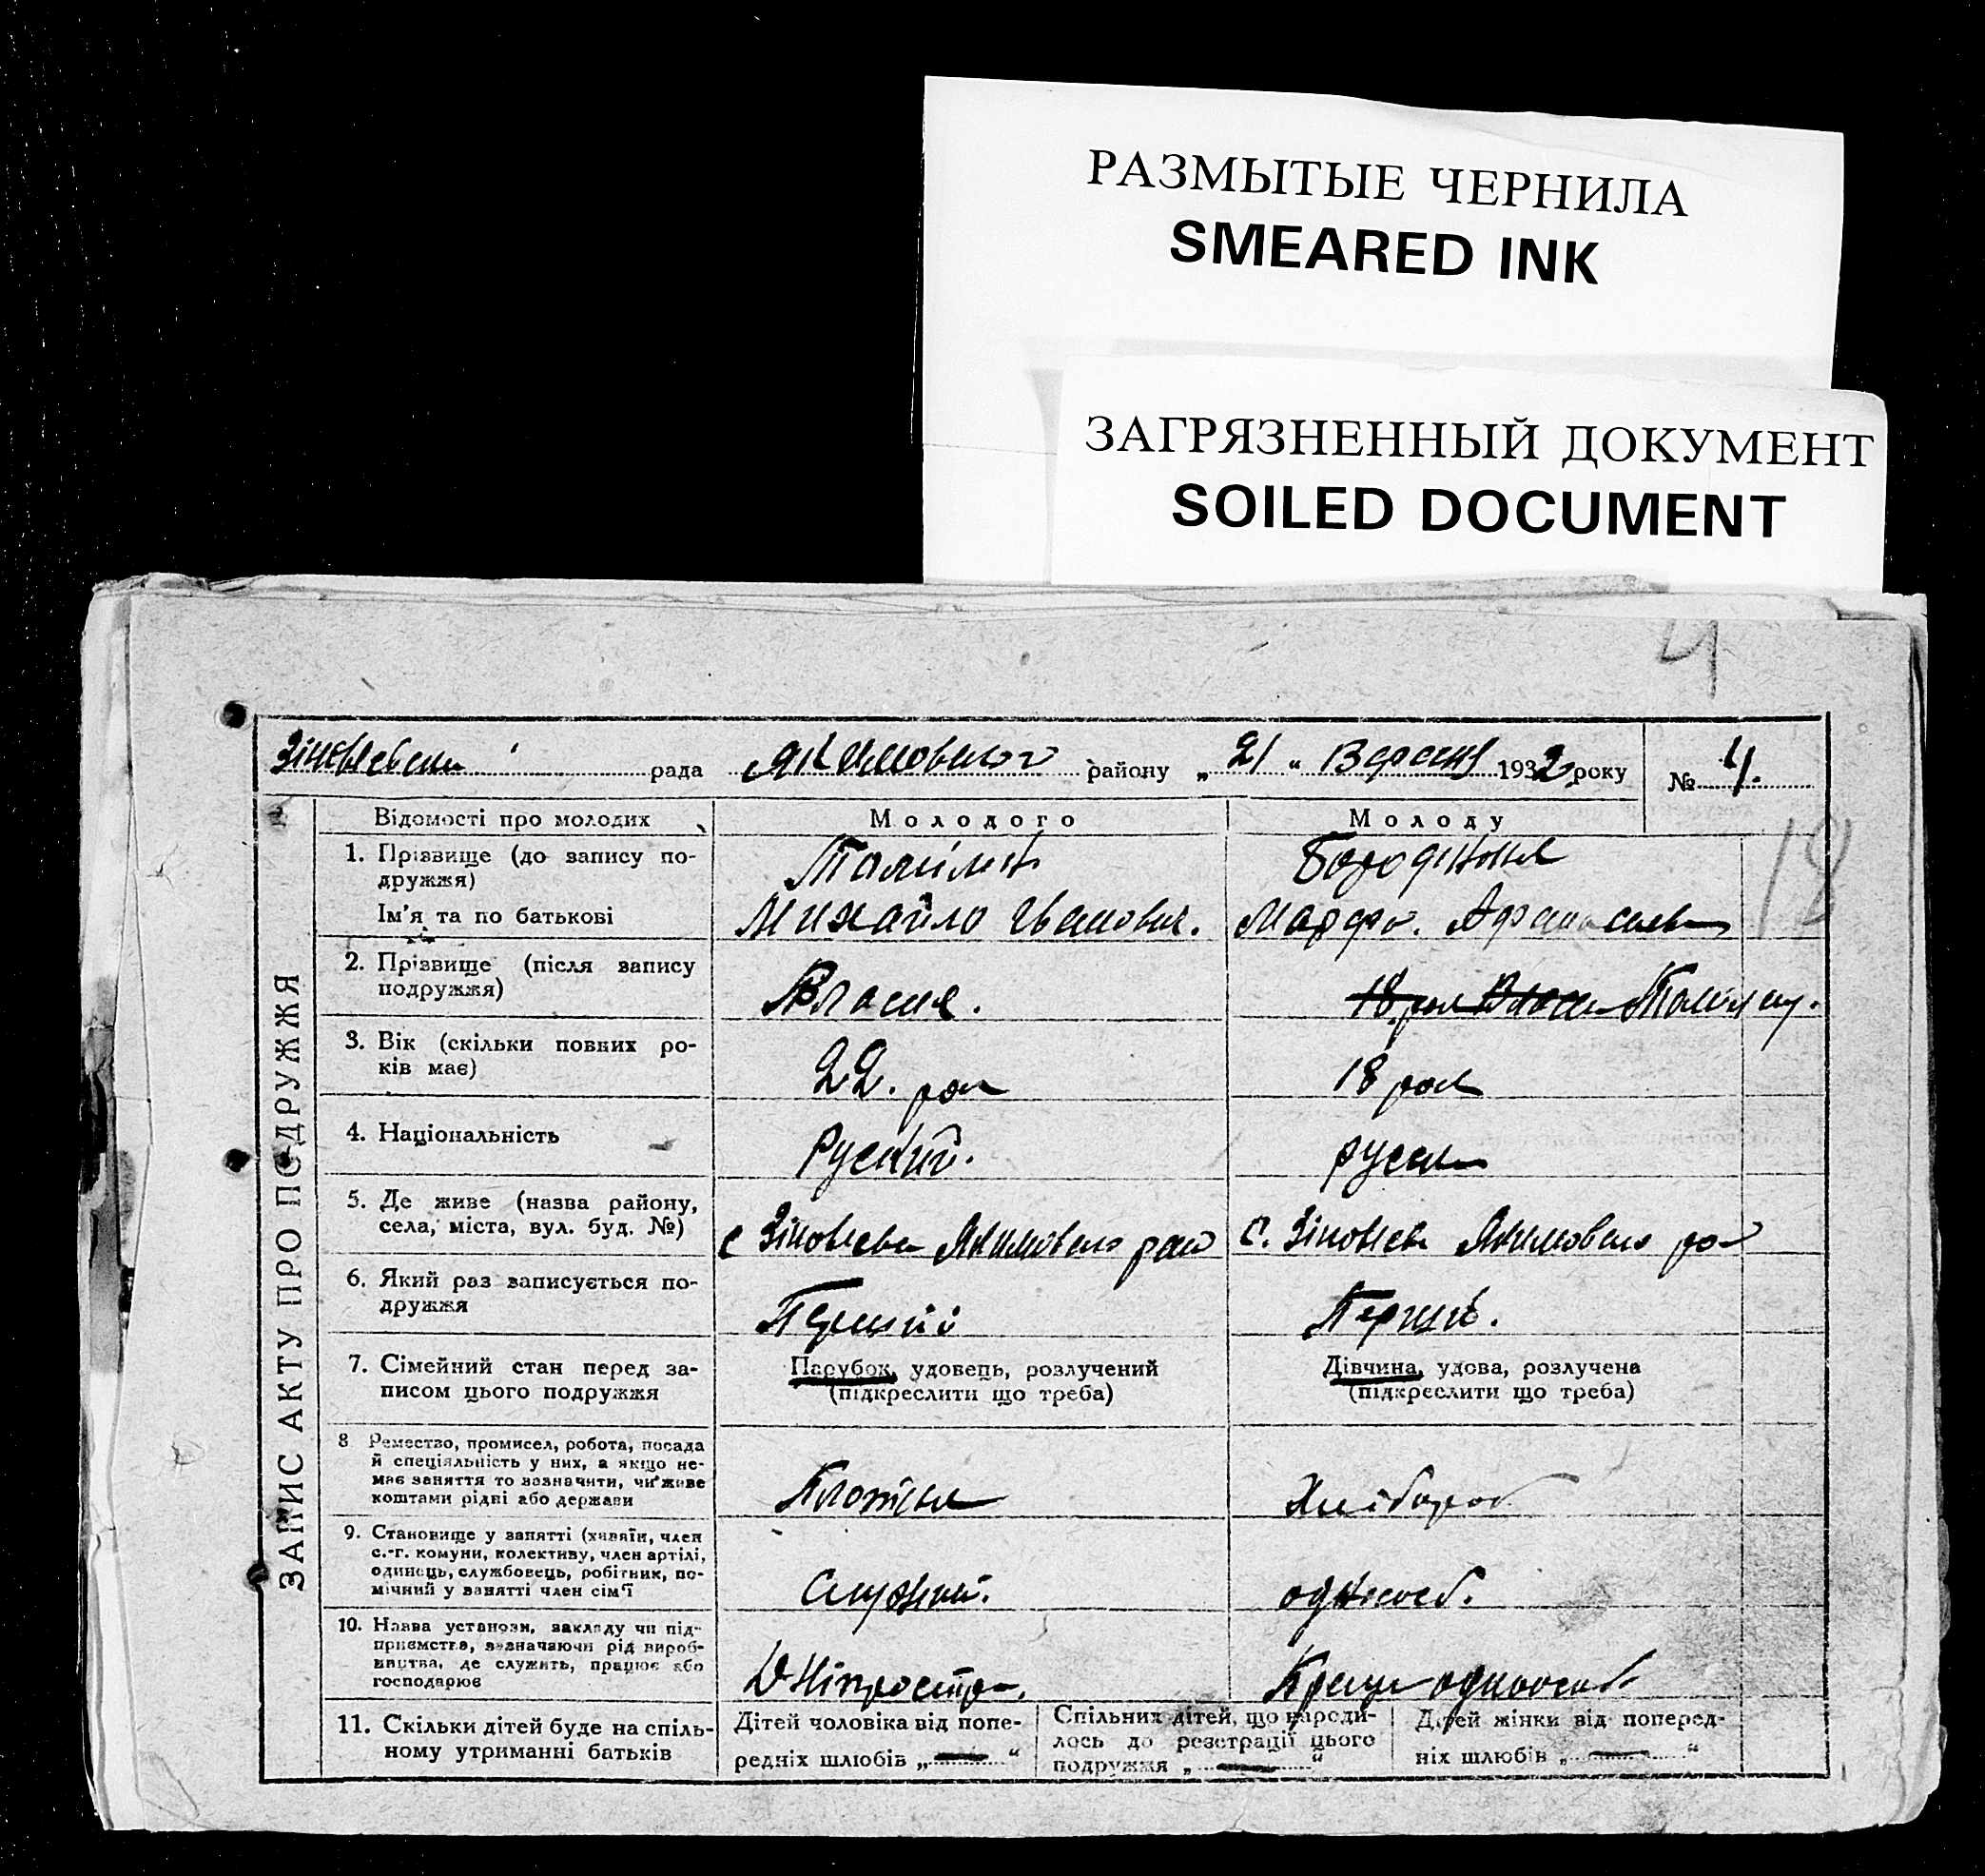 РАЗМЫТЫЕ ЧЕРНИЛА
SMEARED INK
ЗАГРЯЗНЕННЫЙ ДОКУМЕНТ
SOILED DOCUMENT
4
рада Якимовского району „ 21 “ Вересня 1932 року № 4.
18
ЗАПИС АКТУ ПРО ПОДРУЖЖЯ
Відомості про молодих
Молодого
Молоду
1. Прізвище (до запису по-
дружжя)
Ім'я та по батькові
Михайло Іванович.
Марфа.
2. Прізвище (після запису
подружжя)
3. Вік (скільки повних ро-
ків має)
22. рок
18 рок
4. Національність
Руский.
руска
5. Де живе (назва району,
села, міста, вул. буд. №)
6. Який раз записується по-
дружжя
Перший
Перший.
7. Сімейний стан перед за-
писом цього подружжя
Парубок, удовець, розлучений
(підкреслити що треба)
Дівчина, удова, розлучена
(підкреслити що треба)
8 Ремество, промисел, робота, посада
й спеціяльність у них, а якщо не-
має заняття то зазначити, чи живе
коштами рідні або держави
Хлібороб
9. Становище у занятті (хазяїн, член
с.-г. комуни, колективу, член артілі,
одинець, службовець, робітник, по-
мічний у занятті член сім'ї
одноос.
10. Назва установи, закладу чи під-
приємства, зазначаючи рід вироб-
ництва, де служить, працює або
господарює
Дніпрострой.
11. Скільки дітей буде на спіль-
ному утриманні батьків
Дітей чоловіка від попе-
редніх шлюбів „ — “
Спільних дітей, що народи-
лось до реєстрації цього
подружжя „ — “
Дітей жінки від поперед-
ніх шлюбів „ — “